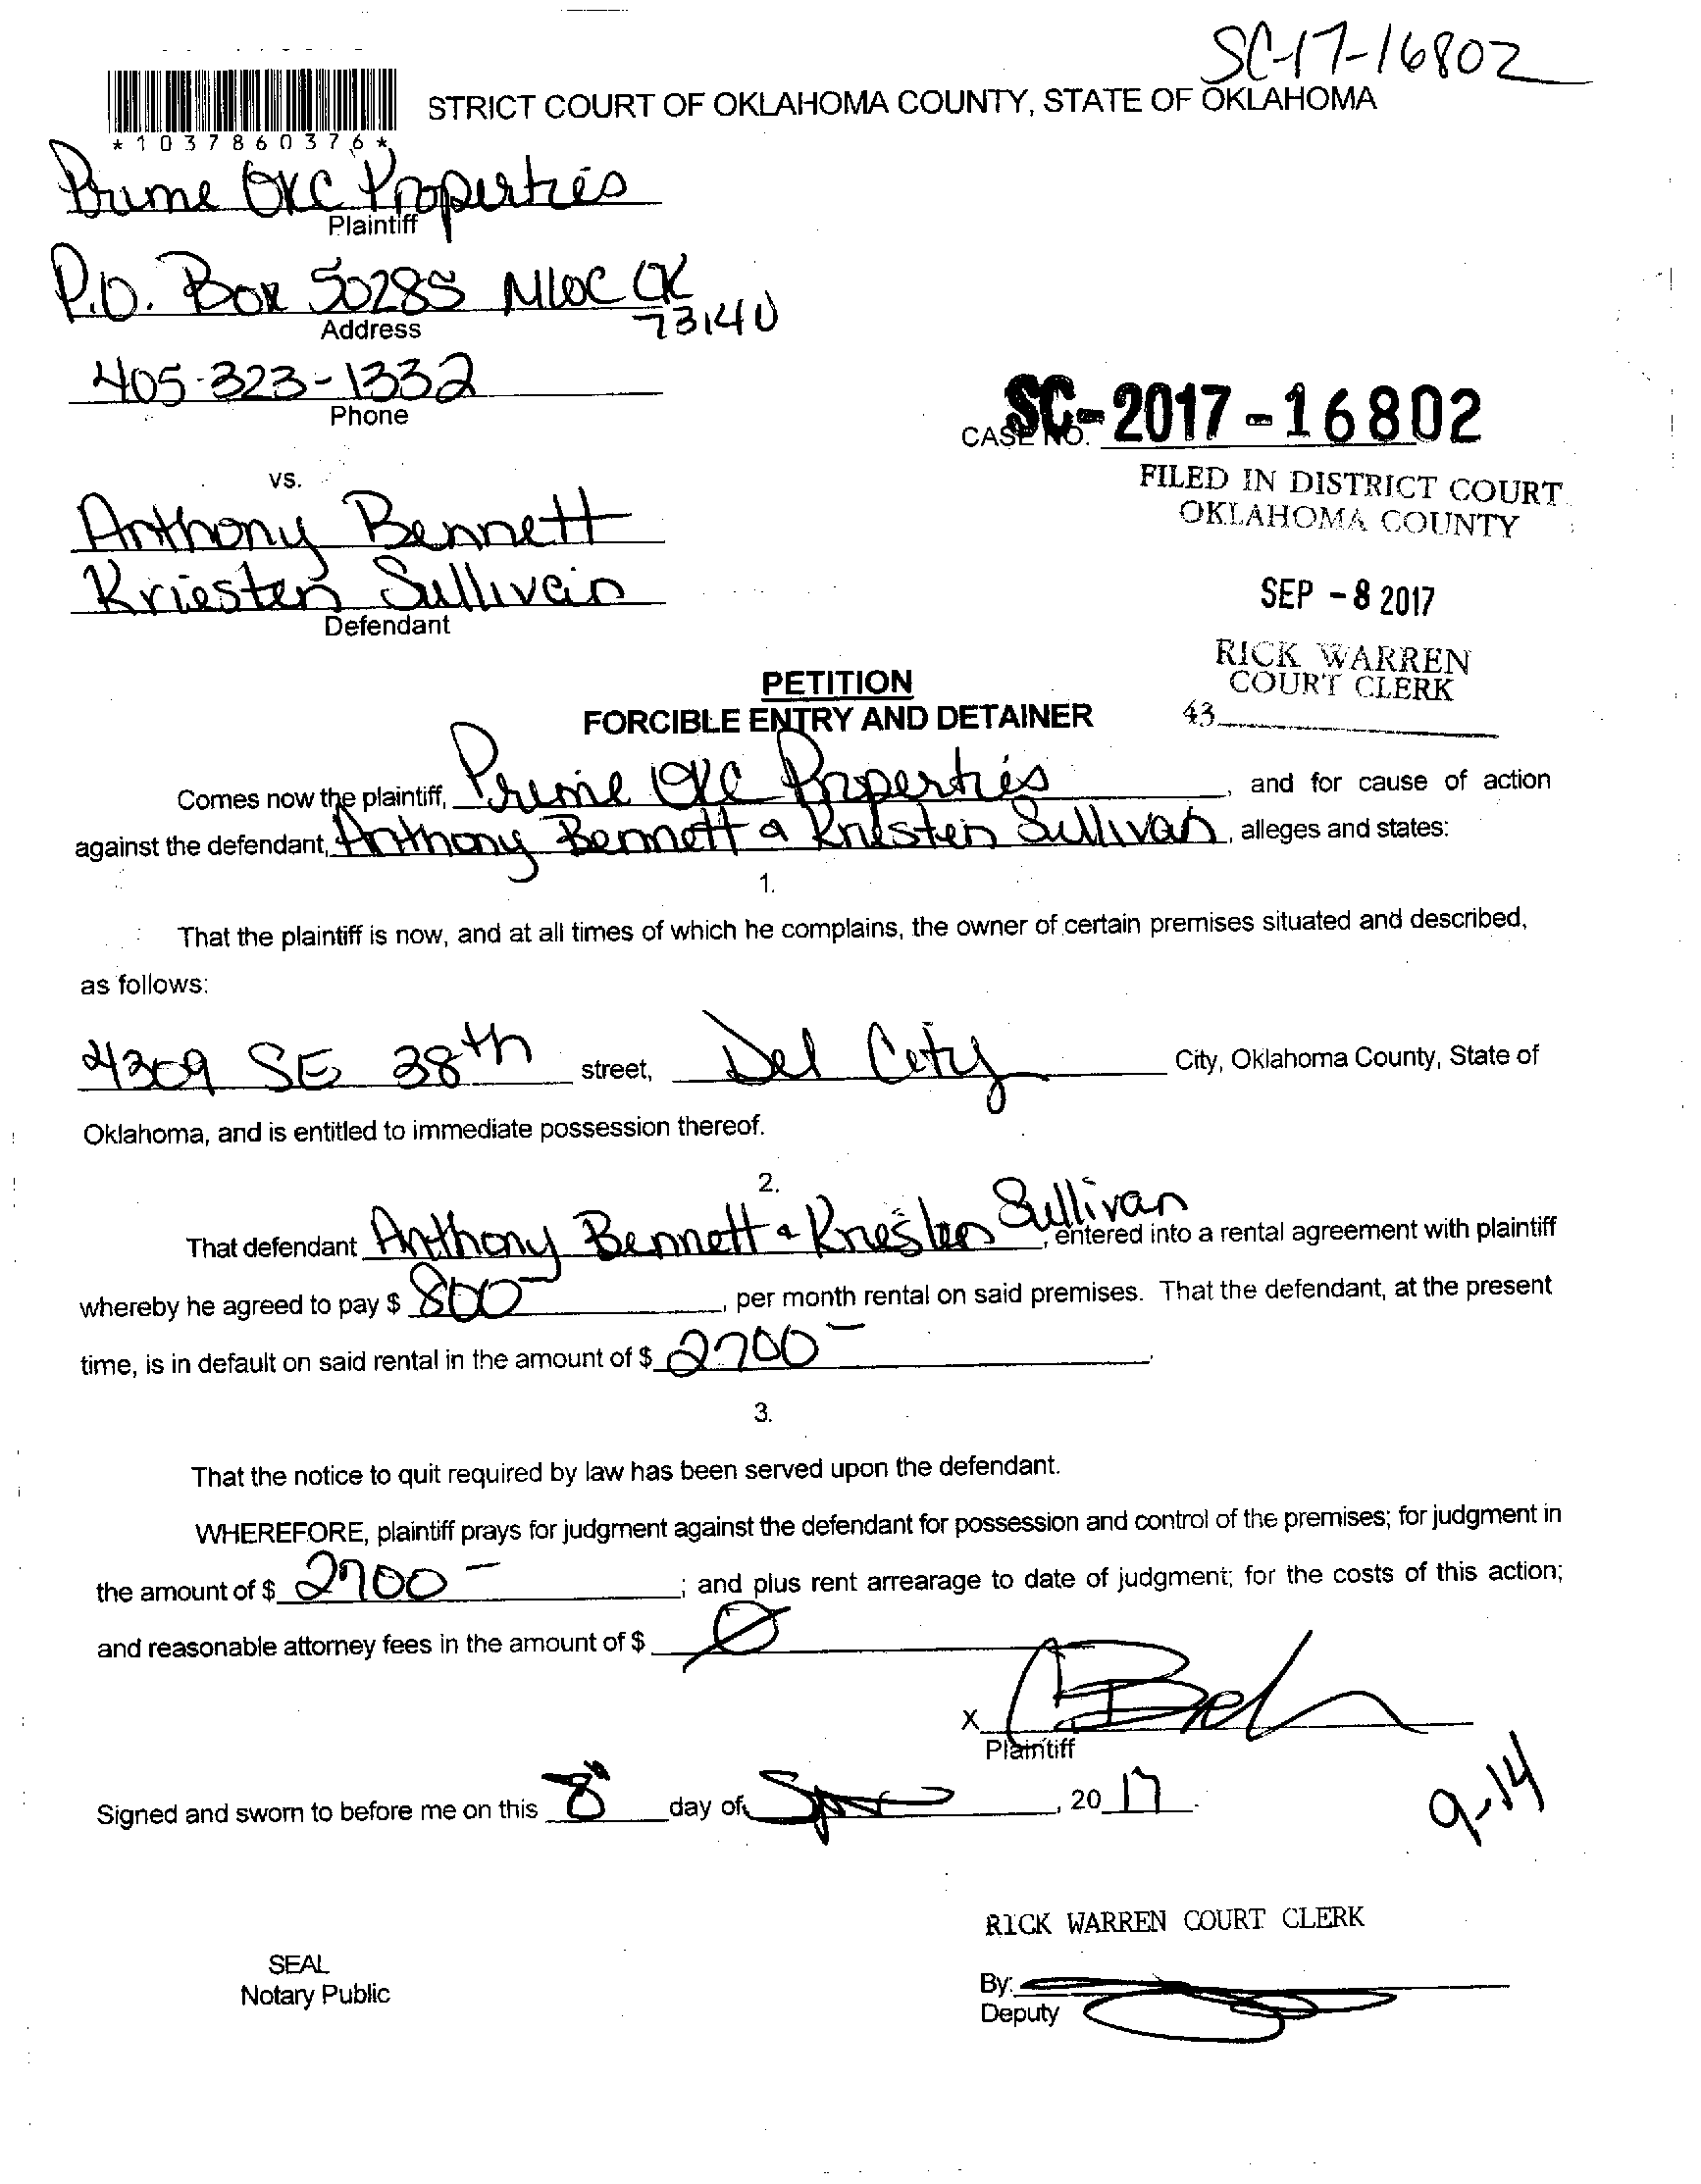 SC-17-16802
STRICT COURT OF OKLAHOMA COUNTY, STATE OF OKLAHOMA
*1037860376*
Prime OKC Properties
Plaintiff
P.O. Box 50285 MWC OK
73140
Address
405-323-1332
Phone
CASE NO. SC-2017-16802
FILED IN DISTRICT COURT
OKLAHOMA COUNTY
vs.
Anthony Bennett
Kriesten Sullivan
Defendant
SEP -8 2017
RICK WARREN
COURT CLERK
43
PETITION
FORCIBLE ENTRY AND DETAINER
Comes now the plaintiff, Prime OKC Properties, and for cause of action
against the defendant, Anthony Bennett & Kriesten Sullivan, alleges and states:
1.
That the plaintiff is now, and at all times of which he complains, the owner of certain premises situated and described,
as follows:
4309 SE 38th street, Del City City, Oklahoma County, State of
Oklahoma, and is entitled to immediate possession thereof.
2.
That defendant Anthony Bennett & Kriesten Sullivan, entered into a rental agreement with plaintiff
whereby he agreed to pay $ 800-, per month rental on said premises. That the defendant, at the present
time, is in default on said rental in the amount of $ 2700-.
3.
That the notice to quit required by law has been served upon the defendant.
WHEREFORE, plaintiff prays for judgment against the defendant for possession and control of the premises; for judgment in
the amount of $ 2700-; and plus rent arrearage to date of judgment; for the costs of this action;
and reasonable attorney fees in the amount of $ Ø
X
Plaintiff
Signed and sworn to before me on this 8th day of, 2017.
9-14
RICK WARREN COURT CLERK
SEAL
Notary Public
By:
Deputy